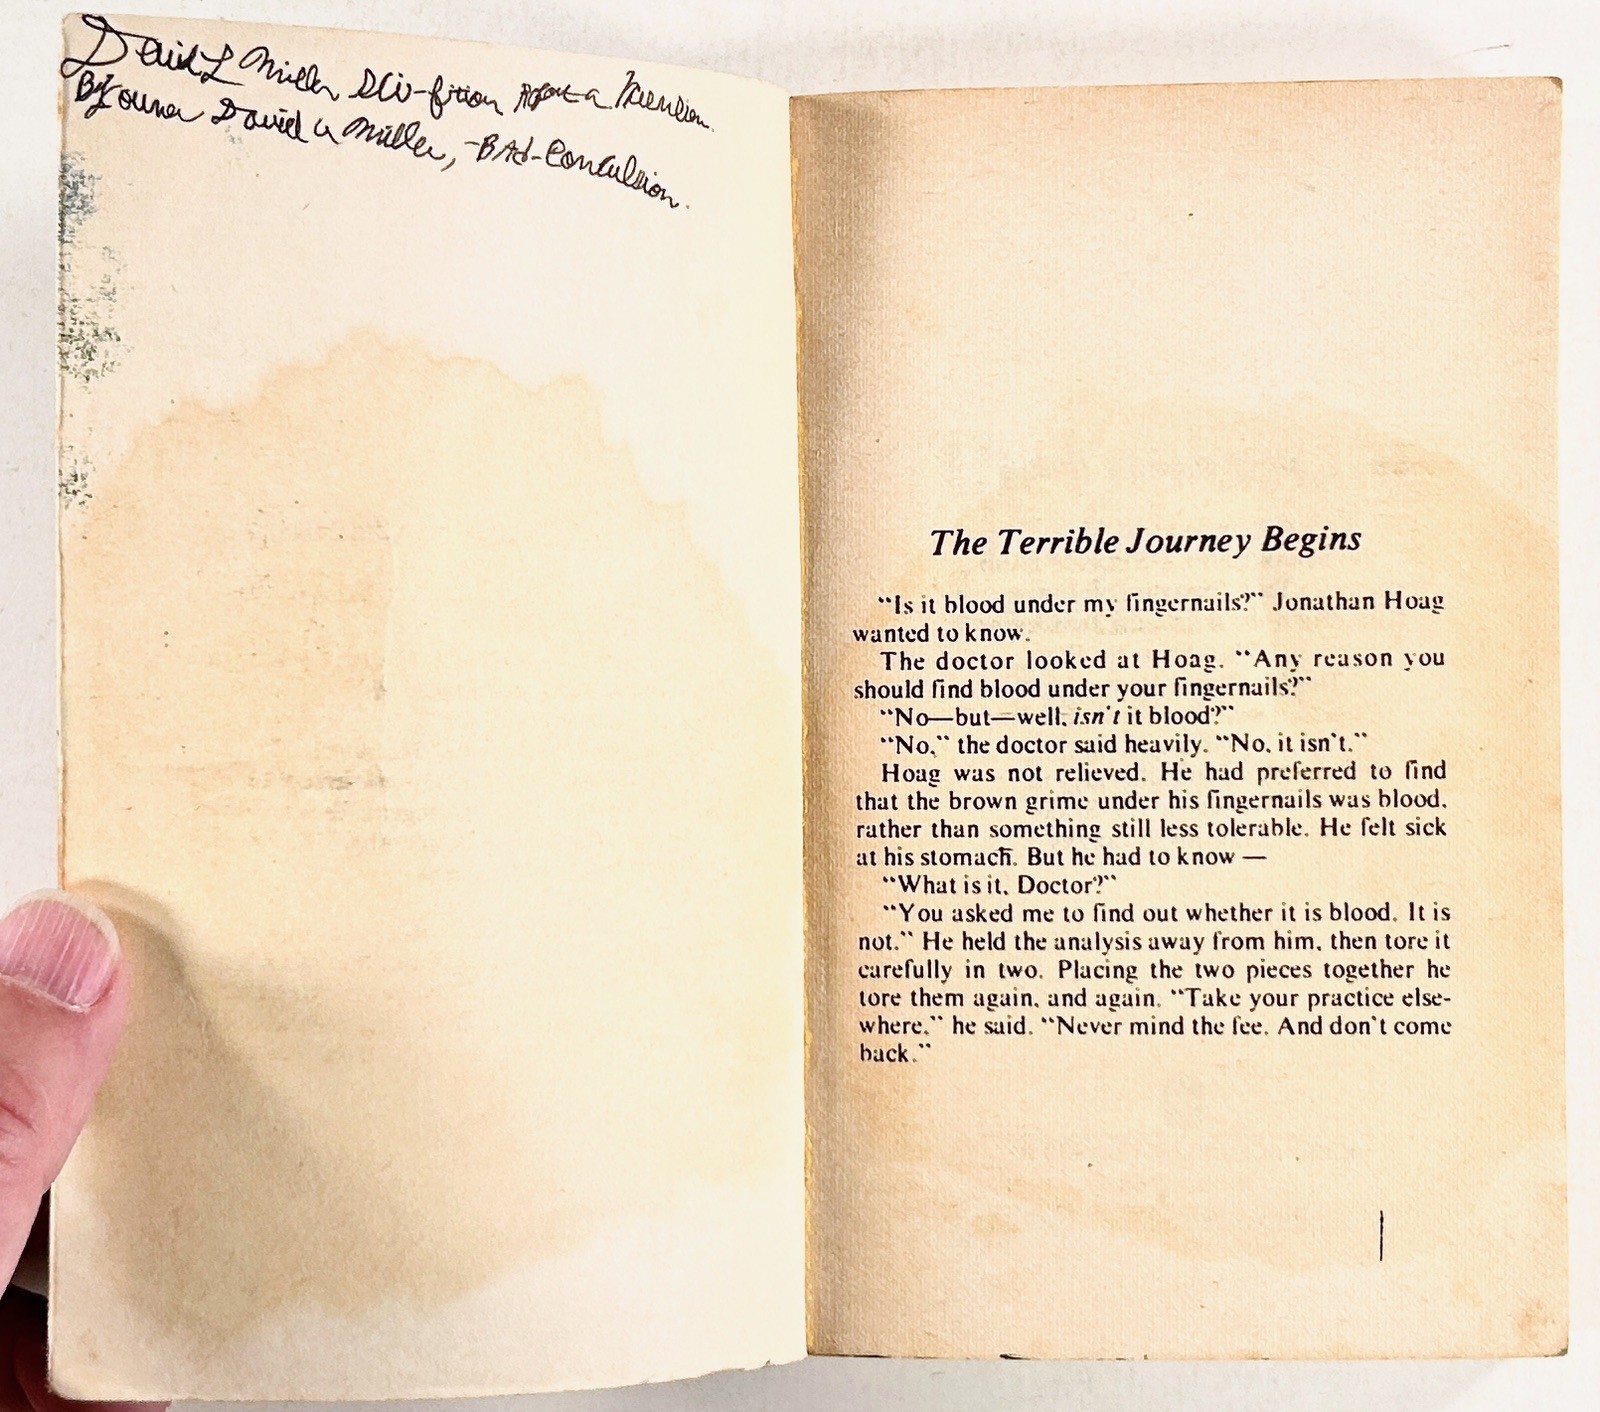 David L Miller Sci-fition
By Youner David a Miller, -BAd-Conculsion.
The Terrible Journey Begins
“Is it blood under my fingernails?” Jonathan Hoag
wanted to know.
The doctor looked at Hoag. “Any reason you
should find blood under your fingernails?”
“No—but—well, isn't it blood?”
“No,” the doctor said heavily. “No, it isn't.”
Hoag was not relieved. He had preferred to find
that the brown grime under his fingernails was blood,
rather than something still less tolerable. He felt sick
at his stomach. But he had to know —
“What is it, Doctor?”
“You asked me to find out whether it is blood. It is
not.” He held the analysis away from him, then tore it
carefully in two. Placing the two pieces together he
tore them again, and again. “Take your practice else-
where,” he said. “Never mind the fee. And don't come
back.”